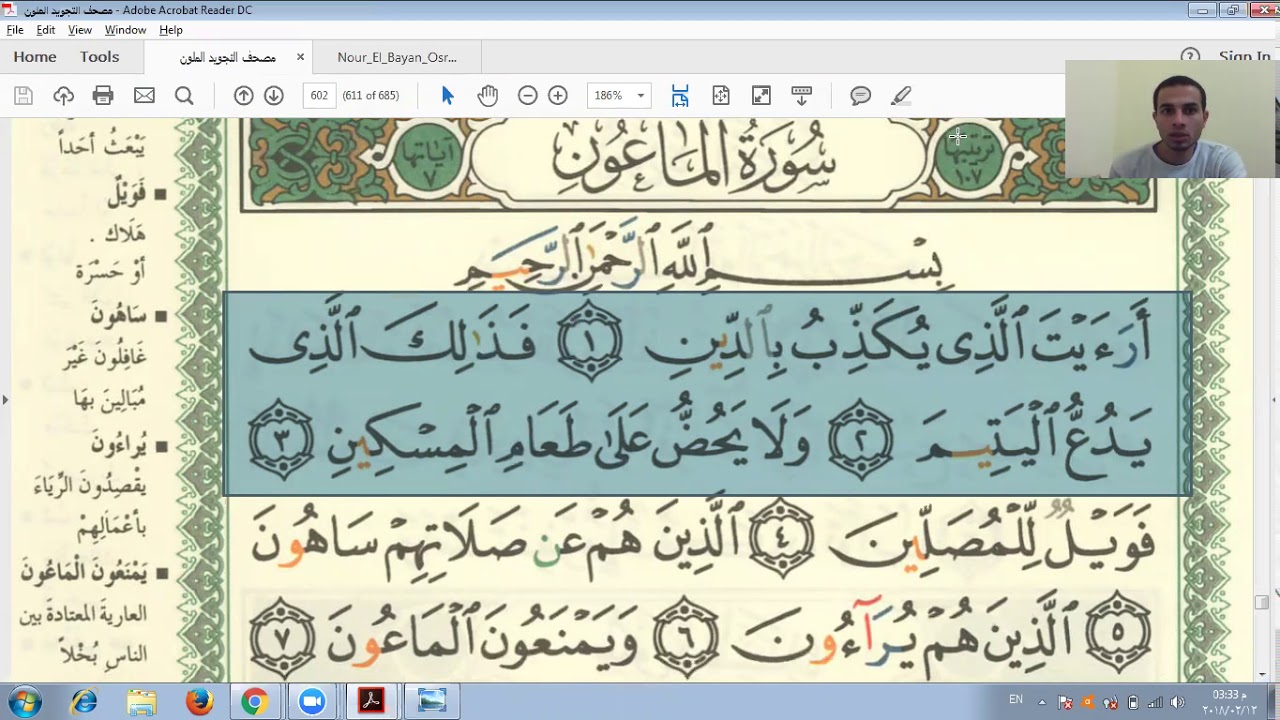 مصحف التجويد الملون - Adobe Acrobat Reader DC
File Edit View Window Help
Home Tools مصحف التجويد الملون × Nour_El_Bayan_Osr... Sign In
602 (611 of 685) 186%
آياتها ٧
سُورَةُ الْمَاعُونِ
ترتيبها ١٠٧
بِسْمِ ٱللَّهِ ٱلرَّحْمَٰنِ ٱلرَّحِيمِ
أَرَءَيْتَ ٱلَّذِى يُكَذِّبُ بِٱلدِّينِ ١ فَذَٰلِكَ ٱلَّذِى
يَدُعُّ ٱلْيَتِيمَ ٢ وَلَا يَحُضُّ عَلَىٰ طَعَامِ ٱلْمِسْكِينِ ٣
فَوَيْلٌ لِّلْمُصَلِّينَ ٤ ٱلَّذِينَ هُمْ عَن صَلَاتِهِمْ سَاهُونَ
٥ ٱلَّذِينَ هُمْ يُرَآءُونَ ٦ وَيَمْنَعُونَ ٱلْمَاعُونَ ٧
يَبْعَثُ أحَداً
■ فَوَيْلٌ
هَلَاك .
أوْ حَسْرَة
■ سَاهُونَ
غَافِلُونَ غَيْرَ
مُبَالِينَ بهَا
■ يُراءُونَ
يقْصِدُونَ الرِّيَاءَ
بأعْمَالِهِمْ
■ يَمْنَعُونَ الْمَاعُونَ
العاريةَ المعتادةَ بين
الناسِ بُخْلاً
EN
03:33 م
٢٠١٨/٠٢/١٢